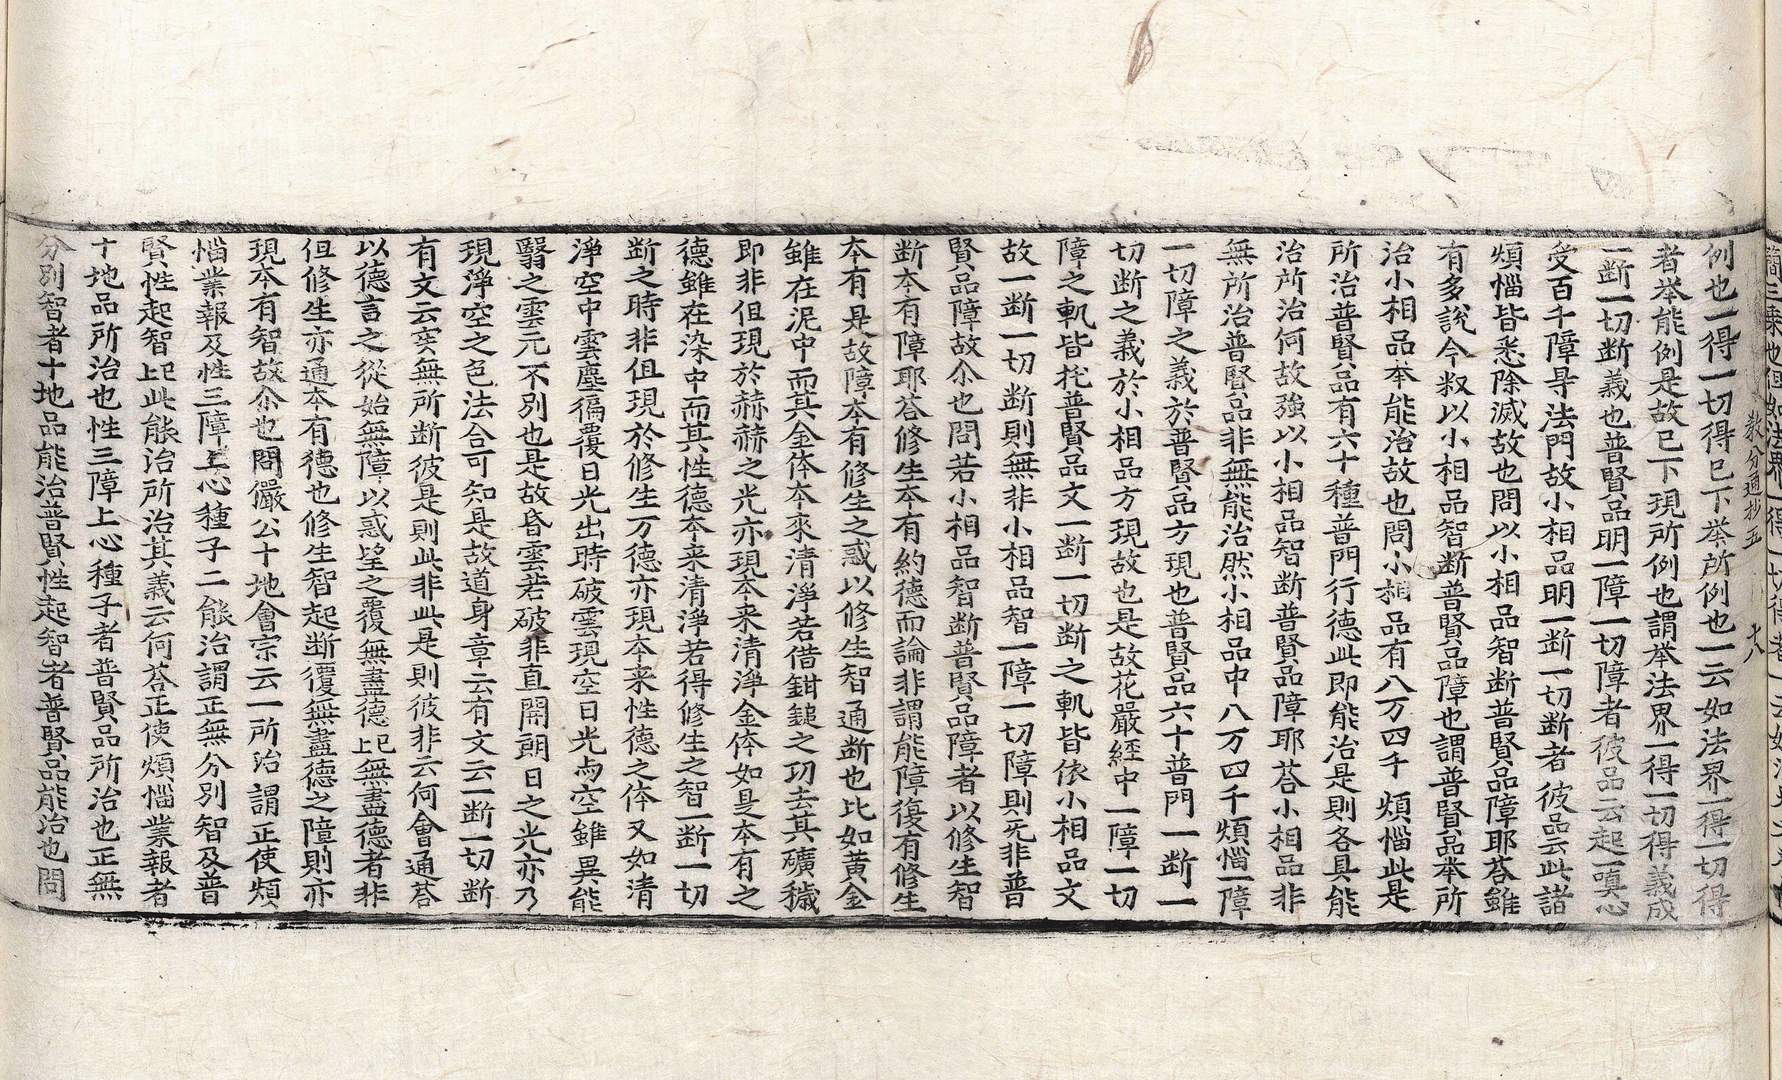 教分通抄五　十八
例也一得一切得已下苐所例也一云如法界一得一切得
者举能例是故已下現所例也謂举法界一得一切得義成
一断一切断義也普賢品明一障一切障者彼品云起一嗔心
受百千障㝵法門故小相品明一断一切断者彼品云此諸
煩惱皆悉除滅故也問以小相品智断普賢品障耶荅雖
有多說今叙以小相品智断普賢品障也謂普賢品夲所
治小相品夲能治故也問小相品有八万四千煩惱此是
所治普賢品有六十種普門行德此即能治是則各具能
治所治何故強以小相品智断普賢品障耶荅小相品非
無所治普賢品非無能治然小相品中八万四千煩惱一障
一切障之義於普賢品方現也普賢品六十普門一断一
切断之義於小相品方現故也是故花嚴經中一障一切
障之軓皆托普賢品文一断一切断之軓皆依小相品文
故一断一切断則無非小相品智一障一切障則无非普
賢品障故尒也問若小相品智断普賢品障者以修生智
断夲有障耶荅修生夲有約德而論非謂能障復有修生
夲有是故障夲有修生之惑以修生智通断也比如黄金
雖在泥中而其金体夲來清淨若借鉗鎚之功去其礦穢
即非但現於赫赫之光亦現夲来清淨金体如是夲有之
德雖在染中而其性德夲来清淨若得修生之智一断一切
断之時非但現於修生万德亦現夲来性德之体又如清
淨空中雲塵徧覆日光出時破雲現空日光与空雖異能
翳之雲元不別也是故昏雲若破非直開朗日之光亦乃
現淨空之色法合可知是故道身章云有文云一断一切断
有文云实無所断彼是則此非此是則彼非云何會通荅
以德言之從始無障以惑望之覆無盡德上己無盡德者非
但修生亦通夲有德也修生智起断覆無盡德之障則亦
現夲有智故尒也問儼公十地會宗云一所治謂正使煩
惱業報及性三障上心種子二能治謂正無分別智及普
賢性起智上己此能治所治其義云何荅正使煩惱業報者
十地品所治也性三障上心種子者普賢品所治也正無
分別智者十地品能治普賢性起智者普賢品能治也問